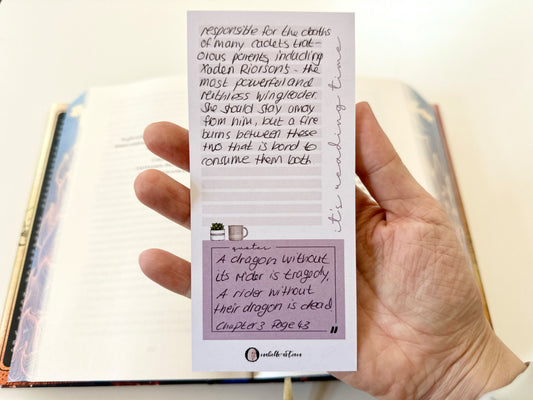 responsible for the deaths
of many cadets trat-
orous parents, including
Xaden Riorson's - the
most powerful and
ruthless wingleader
She should stay away
from him, but a fire
burns between these
two that is bond to
consume them both
it's reading time
quotes
A dragon without
its rider is tragedy,
A rider without
their dragon is dead
Chapter 3 Page 43
"